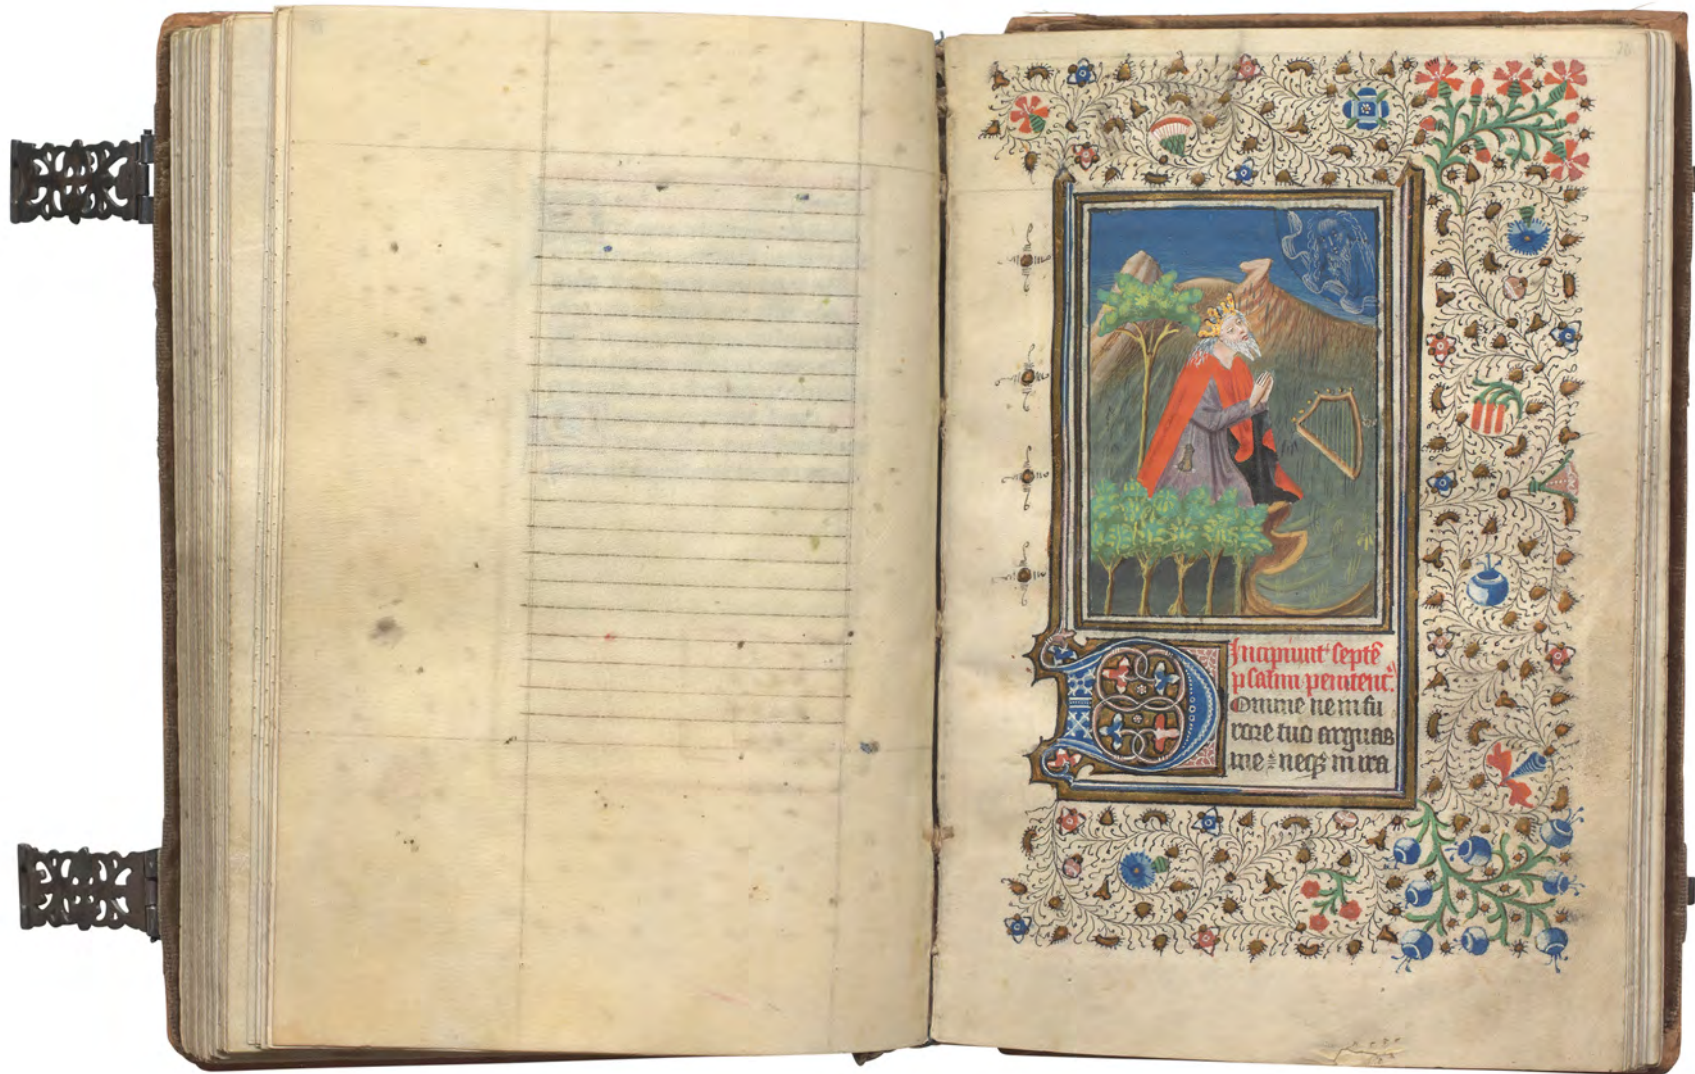 Incipiunt septē
psalmi penitenc̄.
Domine ne in fu
rore tuo arguas
me : neqꝫ in ira